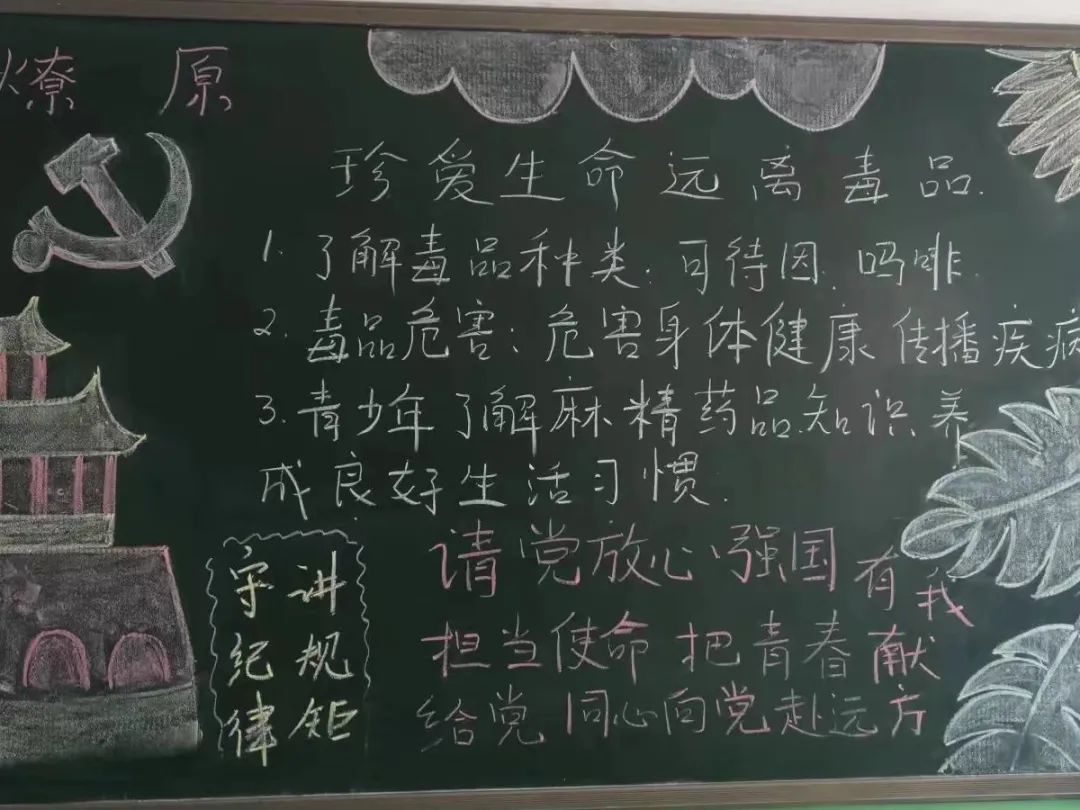 燎原
珍爱生命远离毒品.
1. 了解毒品种类: 可待因. 吗啡.
2. 毒品危害: 危害身体健康 传播疾病
3. 青少年了解麻精药品知识 养
成良好生活习惯.
守纪律
讲规矩
请党放心 强国有我
担当使命 把青春献
给党 同心向党赴远方